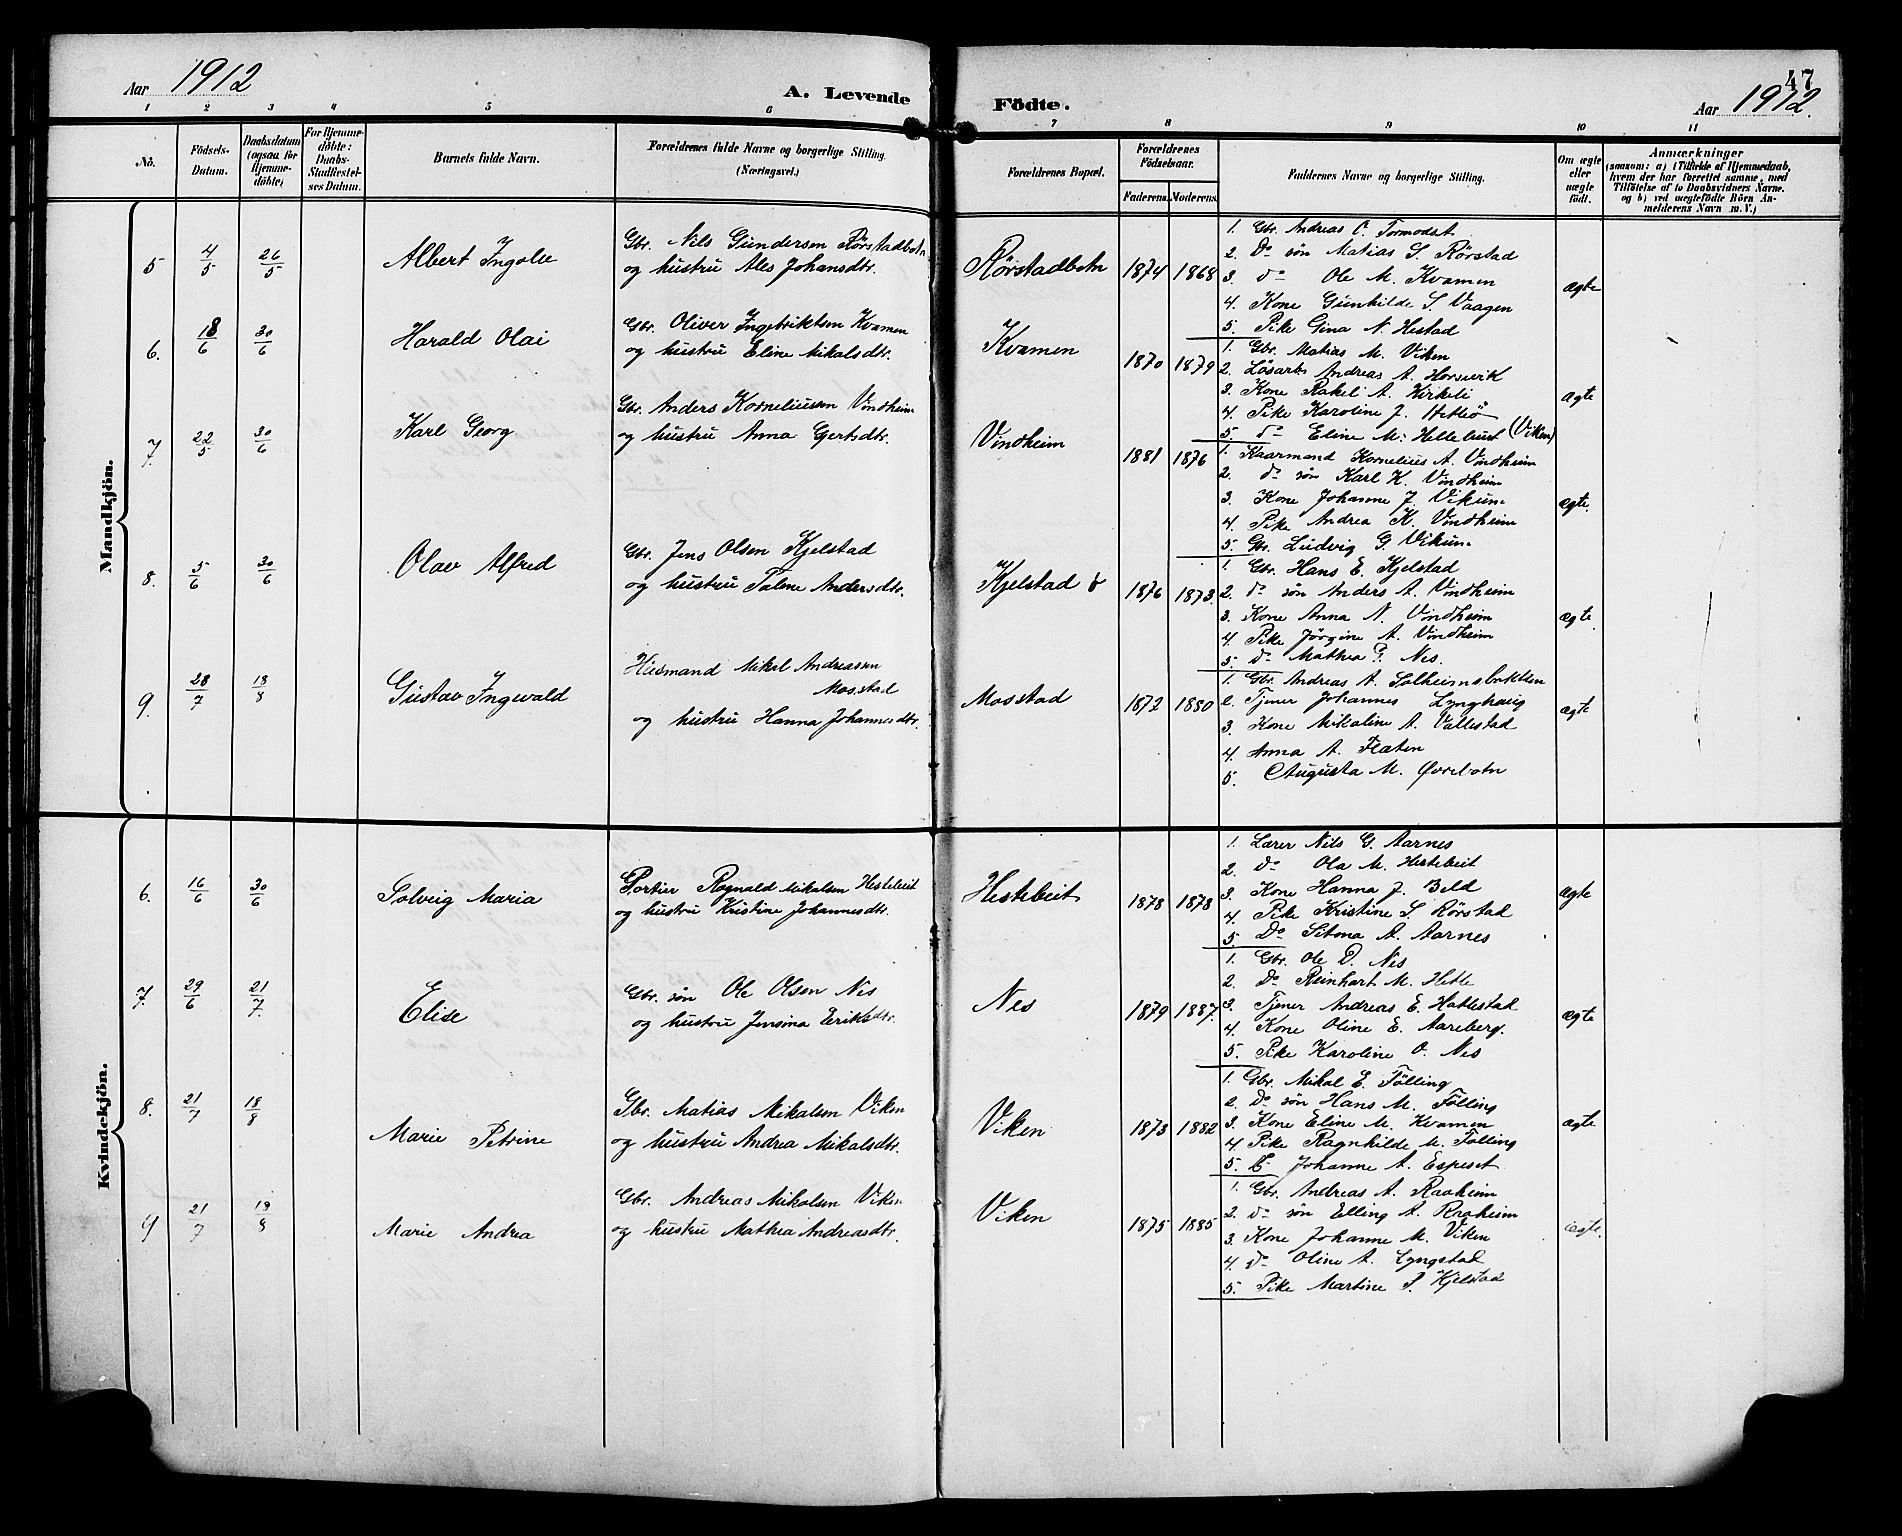 Aar 1912
A. Levende
Födte.
47
Aar 1912.
1 2 3 4 5 6 7 8 9 10 11
No.
Födsels-
Datum.
Daabsdatum
(ogsaa for
Hjemme-
döbte)
For Hjemme-
döbte:
Daabs-
Stadfæstel-
ses Datum.
Barnets fulde Navn.
Forældrenes fulde Navne og borgerlige Stilling.
(Næringsvei.)
Forældrenes Bopæl.
Forældrenes
Födselsaar.
Faderens. Moderens.
Faddernes Navne og borgerlige Stilling.
Om ægte
eller
uægte
födt.
Anmærkninger
(saasom: a) i Tilfælde af Hjemmedaab,
hvem der har forrettet samme, med
Tilföielse af to Daabsvidners Navne.
og b) ved uægtefödte Börn An-
melderens Navn m. V.)
Mandkjön.
5 4/5 26/5 Albert Ingolu
Gbr. Nils Gundersen Rörstadbotn
og hustru Ales Johansdtr.
Rörstadbotn 1874 1868
1. Gbr. Andreas O. Tormodset
2. Do sön Matias S. Rörstad
3. do Ole M. Kvamen
4. Kone Gunhilde S. Vaagen
5. Pike Gina N. Hestad
ægte
6. 18/6 30/6 Harald Olai
Gbr. Oliver Ingebriktsen Kvamen
og hustru Eline Mikalsdtr.
Kvamen 1870 1879
1. Gbr. Matias M. Viken
2. Lösarb. Andreas A. Horsevik
3. Kone Rakel A. Kirkeli
4. Pike Karoline J. Hetleö
5. do Eline M. Hellebust (Viken)
ægte
7. 22/5 30/6 Karl Georg
Gbr. Anders Korneliussen Vindheim
og hustru Anna Gertsdtr.
Vindheim 1881 1876
1. Kaarmand Kornelius A. Vindheim
2. do sön Karl K. Vindheim
3. Kone Johanne J. Vikum
4. Pike Andrea K. Vindheim
5. Gbr. Ludvig G. Vikum
ægte.
8. 5/6 30/6 Olav Alfred
Gbr. Jens Olsen Kjelstad
og hustru Talene Andersdtr.
Kjelstad 1876 1873.
1. Gbr. Hans E. Kjelstad
2. do sön Anders A. Vindheim
3. Kone Anna N. Vindheim
4. Pike Jörgine A. Vindheim
5. do Mathea P. Nes.
ægte
9. 28/7 18/8 Gustav Ingvald
Husmand Mikal Andreassen
Mosstad
og hustru Hanna Johannesdtr.
Mosstad 1872 1880
1. Gbr. Andreas A. Solheimsbukten
2. Tjener Johannes Lynghaug
3. Kone Mikaline A. Vallestad
4. Anna A. Flaten
5. Augusta M. Övrebotn
ægte
Kvindekjön.
6. 16/6 30/6 Solveig Maria
Portier Ragnald Mikalsen Hestebeit
og hustru Kristine Johannesdtr.
Hestebeit 1878 1878
1. Lærer Nils G. Aarnes
2. do Ola M. Hestebeit
3. Kone Hanna J. Beld
4. Pike Kristine S. Rörstad
5. Do Setona A. Aarnes
ægte
7. 29/6 21/7. Elise
Gbr. sön Ole Olsen Nes
og hustru Jensina Eriksdtr.
Nes 1879 1887.
1. Gbr. Ole D. Nes
2. Do Reinhart M. Hetle
3. Tjener Andreas E. Hatlestad
4. Kone Oline E. Aareberg.
5. Pike Karoline O. Nes
ægte
8. 21/7 18/8 Marie Petrine
Gbr. Matias Mikalsen Viken
og hustru Andrea Mikalsdtr.
Viken 1873 1882
1. Gbr. Mikal E. Fölling
2. Do sön Hans M. Fölling
3. Kone Eline M. Kvamen
4. Pike Ragnhilde M. Fölling
5. Johanne A. Espeset
ægte
9 21/7 18/8 Marie Andrea
Gbr. Andreas Mikalsen Viken
og hustru Mathea Andreasdtr.
Viken 1875 1885
1. Gbr. Andreas A. Raaheim
2. do sön Elling A. Raaheim
3. Kone Johanne M. Viken
4. do Oline A. Lyngstad
5. Pike Martine P. Kjelstad
ægte.